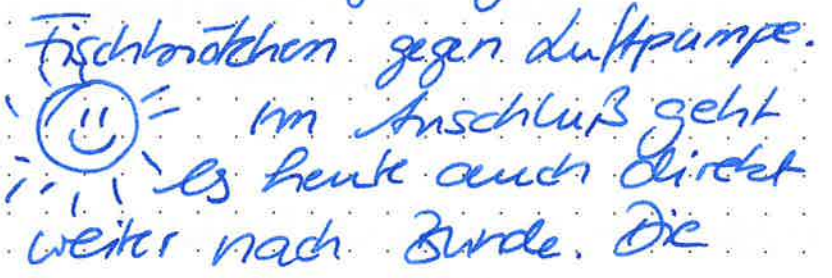 Fischbrötchen gegen Luftpumpe.
im Anschluß geht
es heute auch direkt
weiter nach Bunde. Die